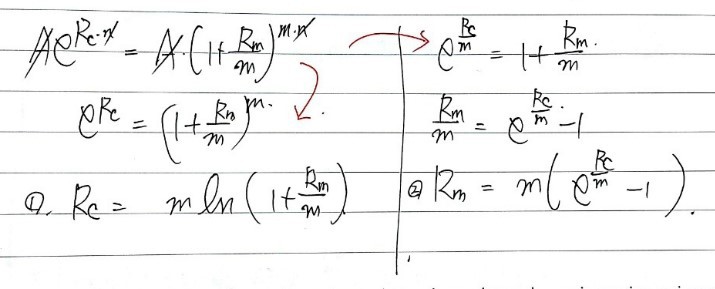 Ae^{Rc·n} = A·(1+Rm/m)^{m·n}
e^{Rc} = (1+Rm/m)^{m·}
①. Rc = m ln(1+Rm/m)
e^{Rc/m} = 1+Rm/m.
Rm/m = e^{Rc/m} -1
② Rm = m(e^{Rc/m} -1).